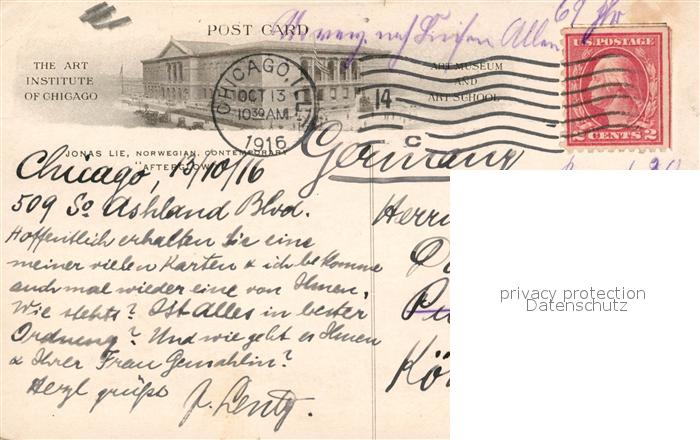 POST CARD
69
THE ART
INSTITUTE
OF CHICAGO
ART MUSEUM
AND
ART SCHOOL
CHICAGO, ILL.
OCT 13
10 30 AM
1916
14
C
U.S. POSTAGE
2 CENTS 2
JONAS LIE, NORWEGIAN, CONTEMPORARY
"AFTERGLOW"
Germany
Chicago, 13/10/16
509 So Ashland Blvd.
Hoffentlich erhalten Sie eine
meiner vielen Karten & ich bekomme
auch mal wieder eine von Ihnen.
Wie stehts? Ist Alles in bester
Ordnung? Und wie geht es Ihnen
& Ihrer Frau Gemahlin?
Herzl grüßt
J. Lentz.
Herrn
Kö
privacy protection
Datenschutz